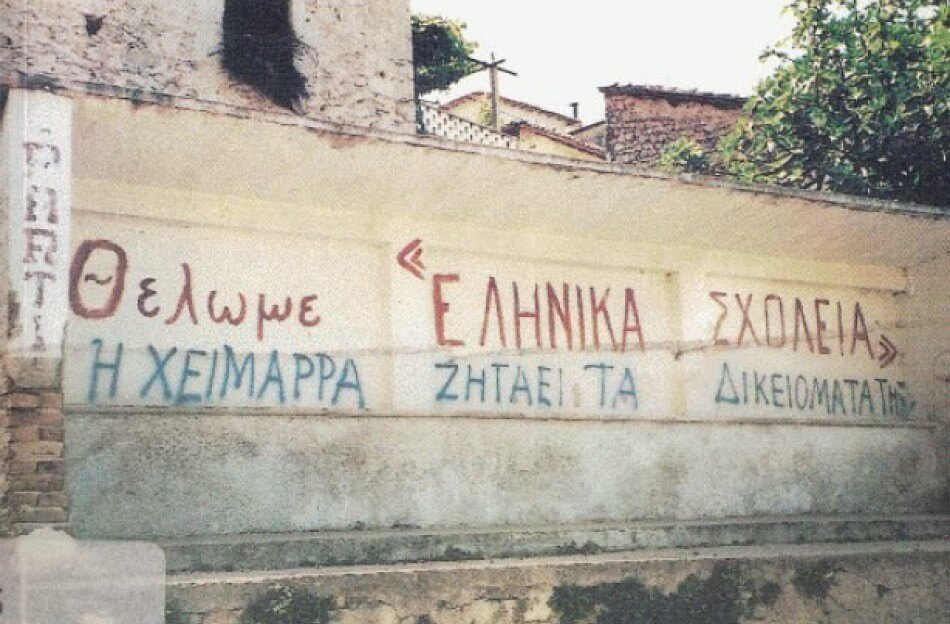 Θελωμε « ΕΛΗΝΙΚΑ ΣΧΟΛΕΙΑ »
Η ΧΕΙΜΑΡΡΑ ΖΗΤΑΕΙ ΤΑ ΔΙΚΕΙΟΜΑΤΑ ΤΗΣ